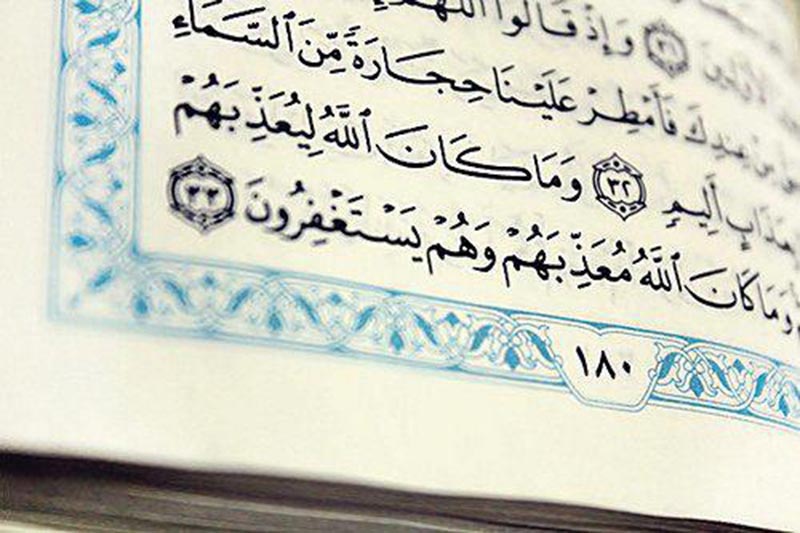 ٱلْأَوَّلِينَ ٣١ وَإِذْ قَالُوا۟ ٱللَّهُمَّ
مِنْ عِندِكَ فَأَمْطِرْ عَلَيْنَا حِجَارَةً مِّنَ ٱلسَّمَآءِ
بِعَذَابٍ أَلِيمٍ ٣٢ وَمَا كَانَ ٱللَّهُ لِيُعَذِّبَهُمْ
وَمَا كَانَ ٱللَّهُ مُعَذِّبَهُمْ وَهُمْ يَسْتَغْفِرُونَ ٣٣
١٨٠